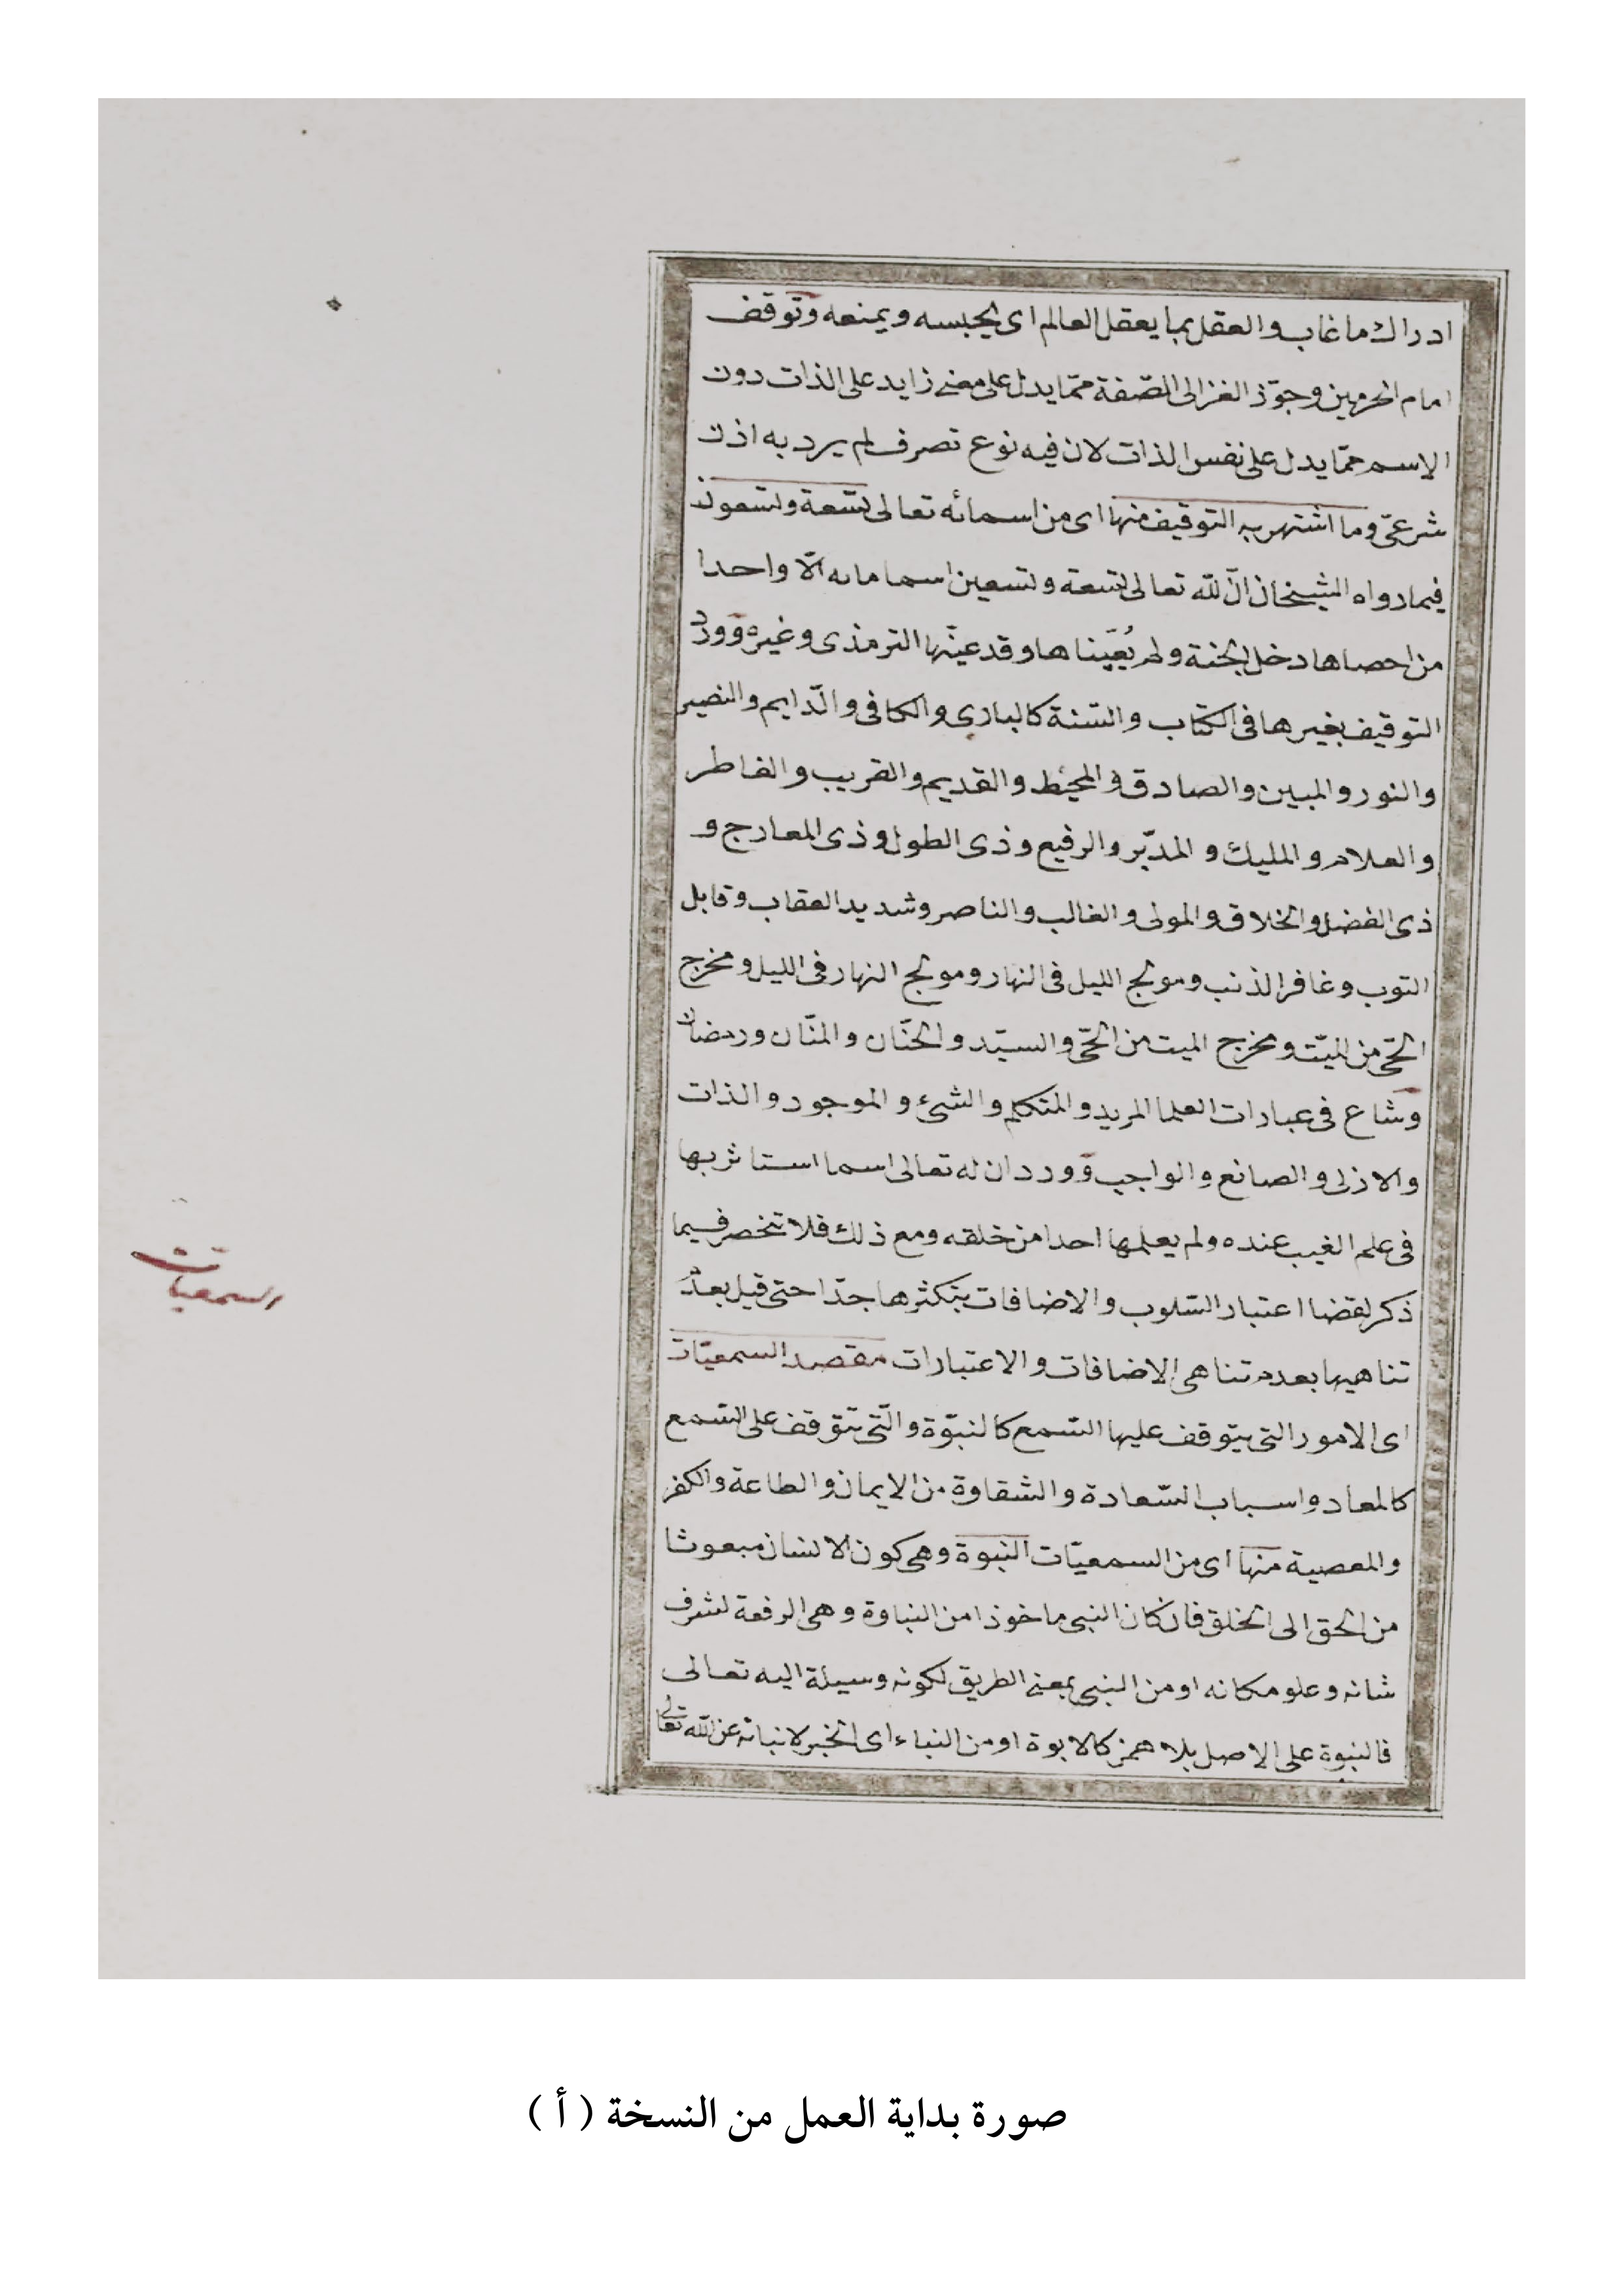 ادراك ما غاب والعقل بما يعقل العالم اى يحبسه ويمنعه وتوقف
امام الحرمين وجوّز الغزالى الصّفة ممّا يدل على معنى زايد على الذات دون
الاسم ممّا يدل على نفس الذات لان فيه نوع تصرف لم يرد به اذن
شرعىّ وما اشتهر به التوقيف منها اى من اسمائه تعالى تسعة وتسعون
فيما رواه الشيخان انّ لله تعالى تسعة وتسعين اسما مايه الّا واحدا
من احصاها دخل الجنة ولم يُعيّناها وقد عيّنها الترمذى وغيره وورد
التوقيف بغيرها فى الكتاب والسّنة كالبارى والكافى والدّايم والنصير
والنور والمبين والصادق والمحيط والقديم والقريب والفاطر
والعلام والمليك والمدبّر والرفيع وذى الطول وذى المعارج و
ذى الفضل والخلاق والمولى والغالب والناصر وشديد العقاب وقابل
التوب وغافر الذنب ومولج الليل فى النهار ومولج النهار فى الليل ومخرج
الحىّ من الميّت ومخرج الميت من الحىّ والسيّد والحنّان والمنّان ورمضان
وشاع فى عبارات العلما المريد والمتكلم والشئ والموجود والذات
والازلى والصانع والواجب وورد ان له تعالى اسما استاثر بها
فى علم الغيب عنده ولم يعلمها احدا من خلقه ومع ذلك فلا تنحصر فيما
ذكر لقضا اعتبار السّلوب والاضافات بتكثرها جدّا حتى قيل بعدم
تناهيها بعدم تناهى الاضافات والاعتبارات مقصد السمعيّات
السمعيات
اى الامور التى يتوقف عليها السّمع كالنبوّة والّتى تتوقف على السّمع
كالمعاد واسباب السّعادة والشقاوة من الايمان والطاعة والكفر
والمعصية منها اى من السمعيّات النبوة وهى كون الانسان مبعوثا
من الحق الى الخلق فان كان النبى ماخوذا من النباوة وهى الرفعة لشرف
شانه وعلو مكانه او من النبى بمعنى الطريق لكونه وسيلة اليه تعالى
فالنبوة على الاصل بلا همز كالابوة او من النباء اى الخبر لانبائه عن الله تعالى
صورة بداية العمل من النسخة ( أ )